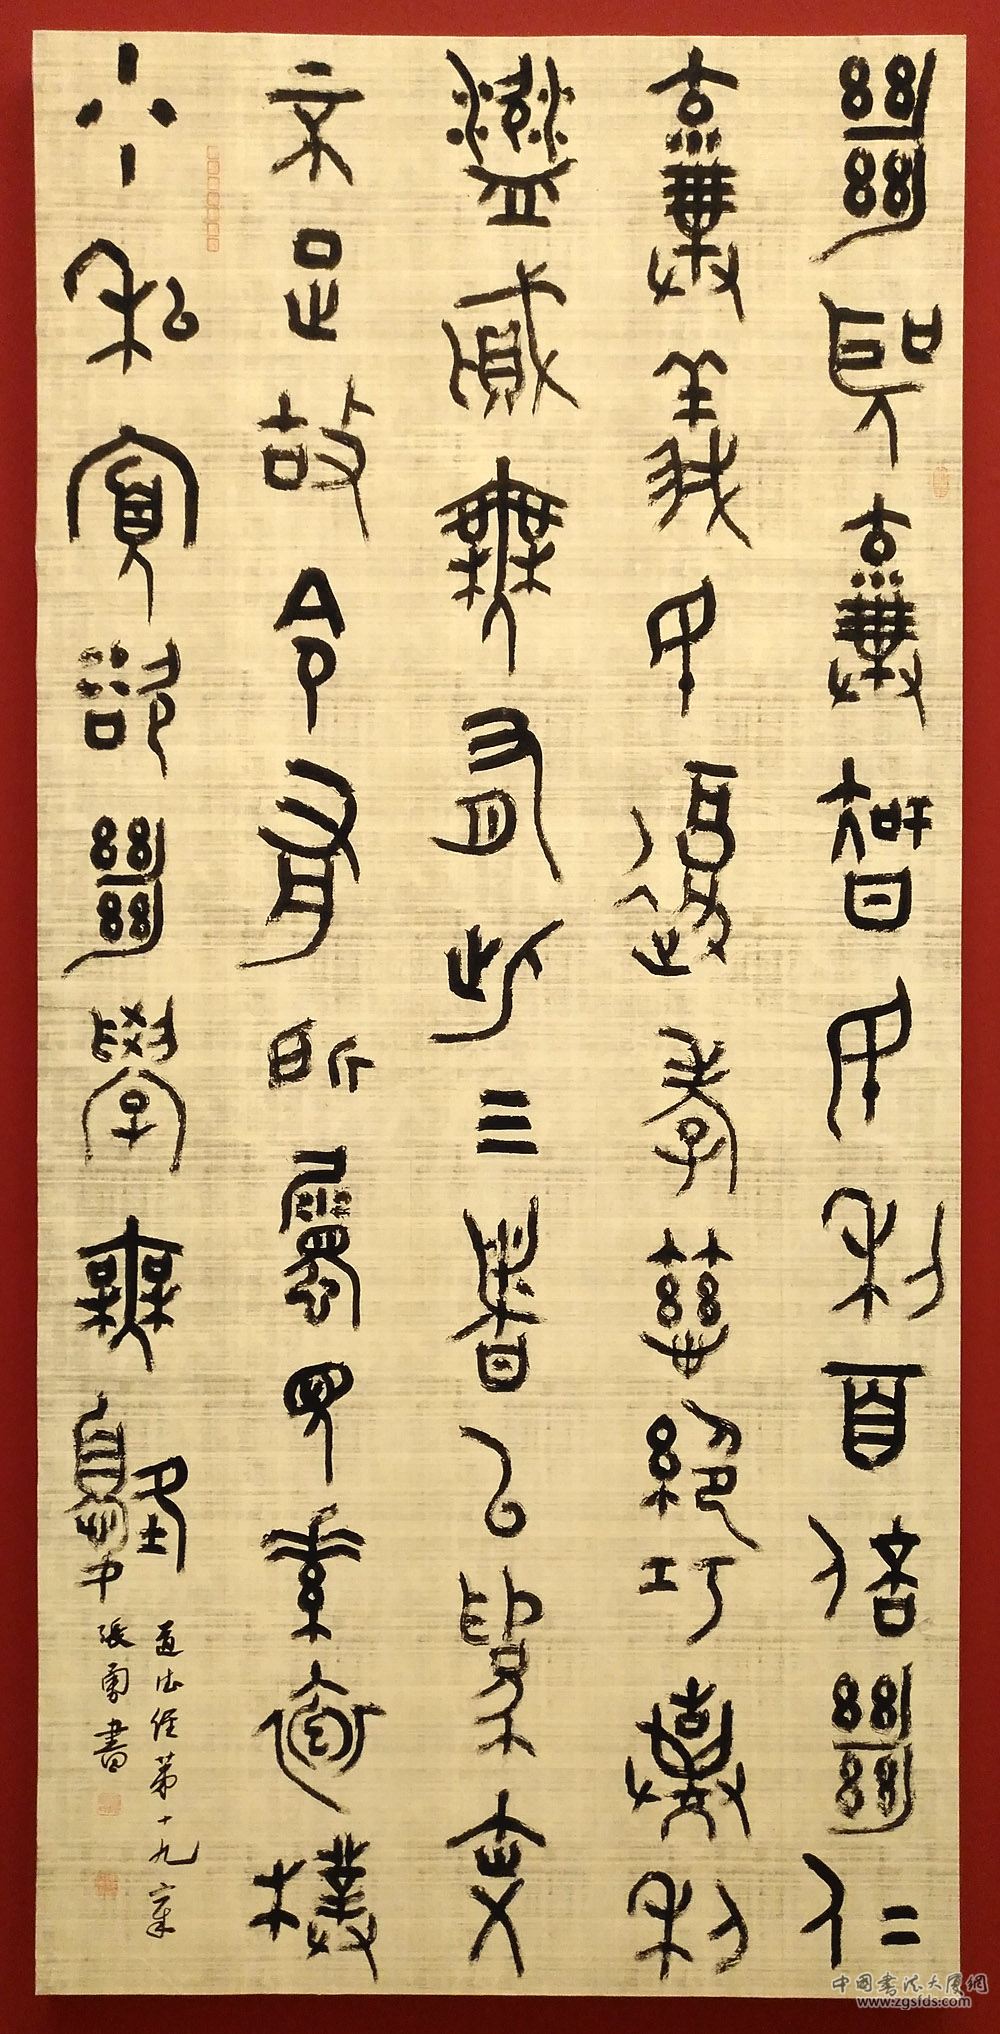 絕聖棄智民利百倍絕仁
棄義民復孝慈絕巧棄利
盜賊無有此三者以為文
不足故令有所屬見素抱樸
少私寡欲絕學無憂
道德經第十九章
張勇書
中国書法大厦網
www.zgsfds.com